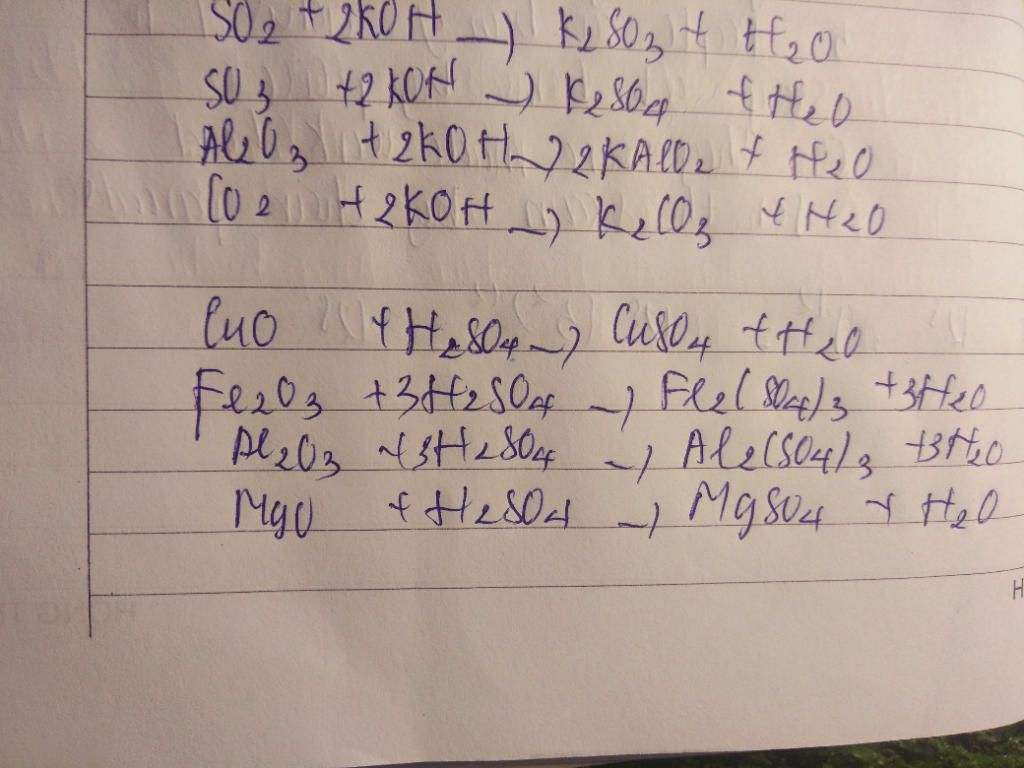 SO2 + 2KOH → K2SO3 + H2O
SO3 + 2KOH → K2SO4 + H2O
Al2O3 + 2KOH → 2KAlO2 + H2O
CO2 + 2KOH → K2CO3 + H2O
CuO + H2SO4 → CuSO4 + H2O
Fe2O3 + 3H2SO4 → Fe2(SO4)3 + 3H2O
Al2O3 + 3H2SO4 → Al2(SO4)3 + 3H2O
MgO + H2SO4 → MgSO4 + H2O
H